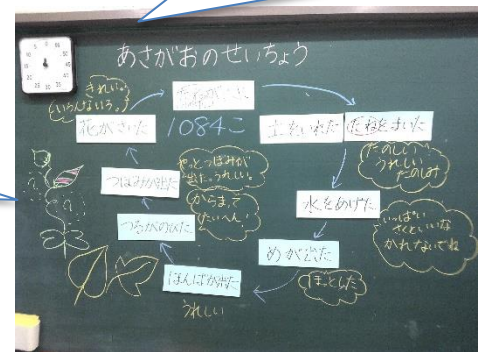 あさがおのせいちょう
きれい。
いろんないろ。
花がさいた
1084こ
土をいれた
たねをまいた
たのしい
うれしい
たのしみ
水をあげた
いっぱい
さくといいな
かれないでね
めが出た
ほっとした
ほんばが出た
うれしい
つるがのびた
からまって
たいへん
つぼみが出た
やっとつぼみが
出た。うれしい。